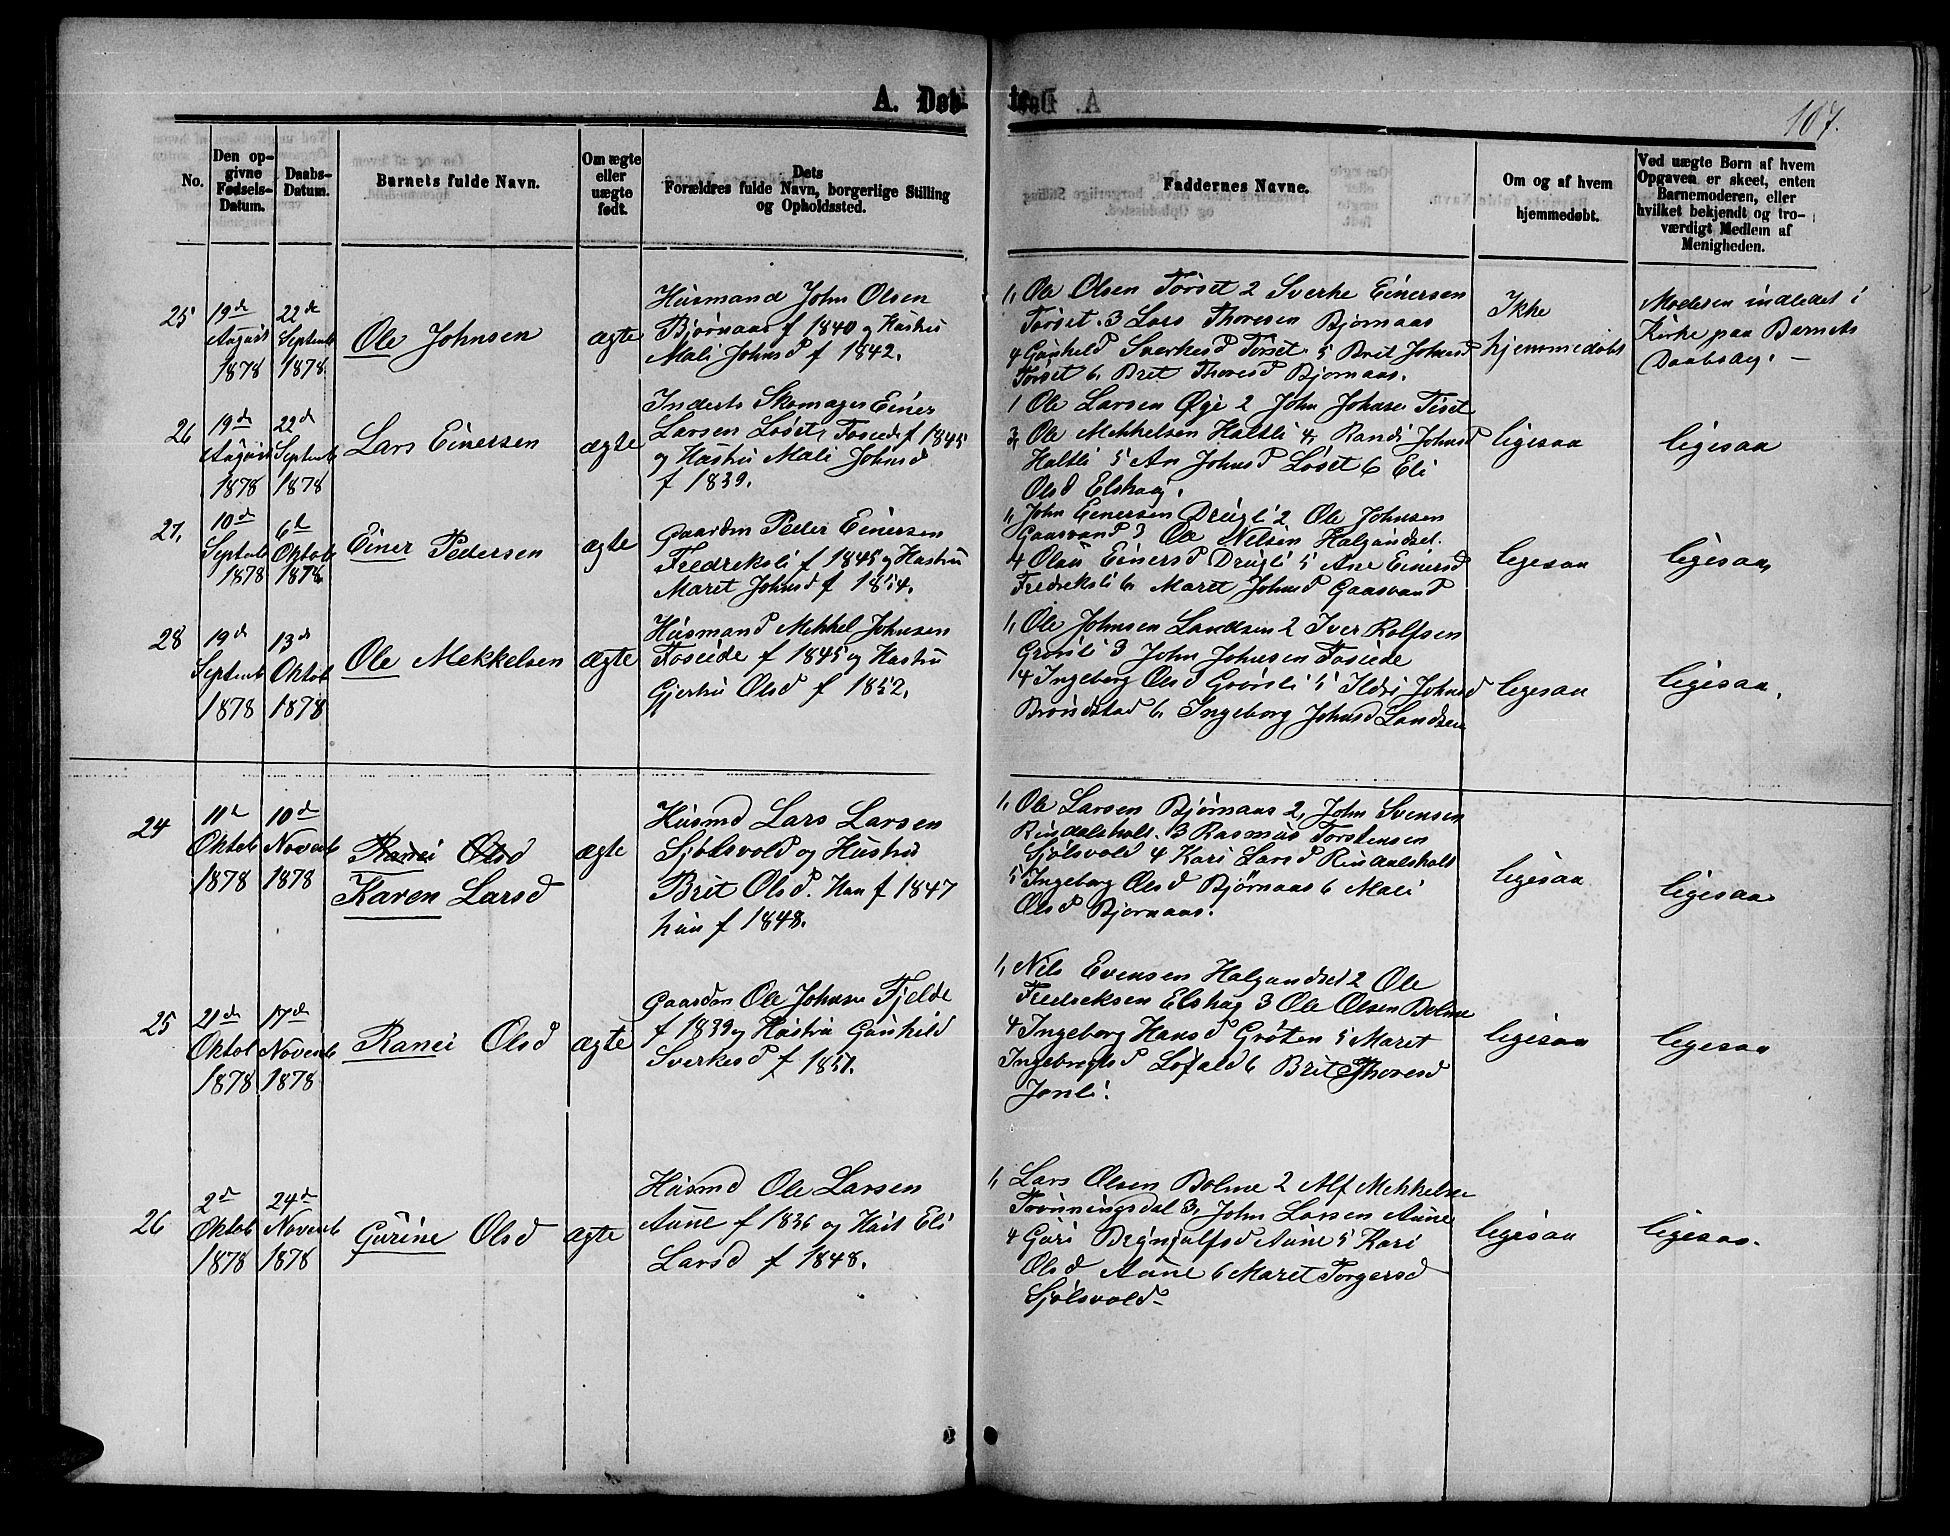 A. Døb-
te
107.
No.
Den op-
givne
Fødsels-
Datum.
Daabs-
Datum.
Barnets fulde Navn.
Om ægte
eller
uægte
født.
Dets
Forældres fulde Navn, borgerlige Stilling
og Opholdssted.
Faddernes Navne.
Om og af hvem
hjemmedøbt.
Ved uægte Børn af hvem
Opgaven er skeet, enten
Barnemoderen, eller
hvilket bekjendt og tro-
værdigt Medlem af
Menigheden.
25
19de
August
1878
22de
Septemb
1878.
Ole Johnsen
ægte
Husmand John Olsen
Bjørnaas f 1840 og Hustru
Mali Johnsd f 1842.
1, Ole Olsen Torset 2 Sverke Einersen
Torset. 3 Lars Thoresen Bjørnaas
4 Gunhild Sverkesd Torset 5 Brit Johnsd
Torset 6, Bret Thoresd Bjørnaas.
Ikke
hjemmedøbt
Moderen indledet i
Kirke paa Barnets
Daabsdag. —
26
19de
August
1878
22de
Septemb
1878
Lars Einersen
ægte
Inderst Skomager Einer
Larsen Løset, Foseide f 1845
og Hustru Mali Johnsd
f 1839.
1 Ole Larsen Øye 2 John Johnsen Tiset
3, Ole Mekkelsen Haltli 4, Randi Johnsd
Haltli 5 An Johnsd Løset 6 Eli
Olsd Elshaug.
ligesaa
ligesaa
27.
10de
Septob
1878
6te
Oktob
1878.
Einer Pedersen
ægte
Gaardm Peder Einersen
Fredreksli f 1845 og Hustru
Maret Johnsd f 1854.
1, John Einersen Drugli 2 Ole Johnsen
Gaasvand 3 Ole Nelsen Halgundset.
4 Olau Einersd Drugli 5 Ane Einersd
Fredreksli 6, Maret Johnsd Gaasvand
ligesaa
ligesaa
28
19de
Septemb
1878
13de
Oktob
1878
Ole Mekkelsen
ægte
Husmand Mekkel Johnsen
Foseide f 1845 og Hustru
Gjertru Olsd f 1852.
1, Ole Johnsen Landsen 2 Iver Rolfsen
Grønli 3 John Johnsen Foseide
4 Ingeborg Olsd Grønli 5 Ildri Johnsd
Brøndstad 6, Ingeborg Johnsd Landsen
ligesaa
ligesaa.
24
11te
Oktob
1878
10de
Novemb
1878
Ranei Olsd
Karen Larsd
ægte
Husmd Lars Larsen
Sjølsvold og Hustru
Brit Olsd. Han f 1847
hun f 1848.
1, Ole Larsen Bjørnaas 2, John Svensen
Rindalsholt. 3 Rasmus Torstensen
Sjølsvold 4 Kari Larsd Rindalsholt
5 Ingeborg Olsd Bjørnaas 6 Mali
Olsd Bjørnaas.
ligesaa
ligesaa
25
21de
Oktob
1878
17de
Novemb
1878
Ranei Olsd
ægte
Gaardm Ole Johnsen Fjelde
f 1839 og Hustru Gunhild
Sverkesd f 1851.
1, Nils Evensen Halgundset 2 Ole
Fredreksen Elshug 3 Ole Olsen Bolme
4 Ingeborg Hansd Grøten 5 Maret
Ingebrigtsd Løfald 6 Brit Thoresd
Jonli.
ligesaa
ligesaa
26
2de
Oktob
1878
24de
Novemb
1878
Gurine Olsd
ægte
Husmd Ole Larsen
Aune f 1836 og Hust Eli
Larsd f 1848.
1, Lars Olsen Bolme 2 Alf Mekkelsen
Trønningsdal 3, John Larsen Aune
4 Guri Brynjulfsd Aune 5 Kari
Olsd Aune 6 Maret Torgersd
Sjølsvold
ligesaa
ligesaa.